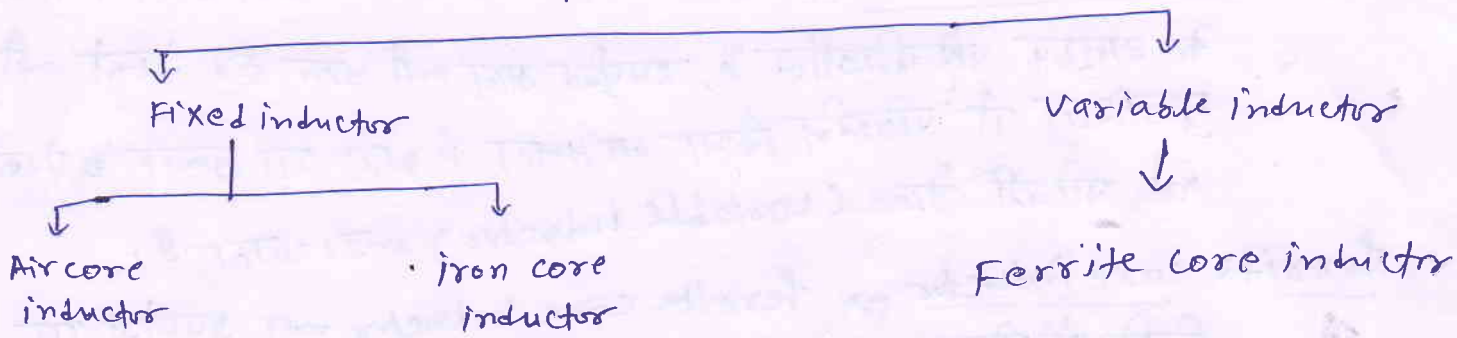 Fixed inductor
Variable inductor
Air core
inductor
iron core
inductor
Ferrite core inductor